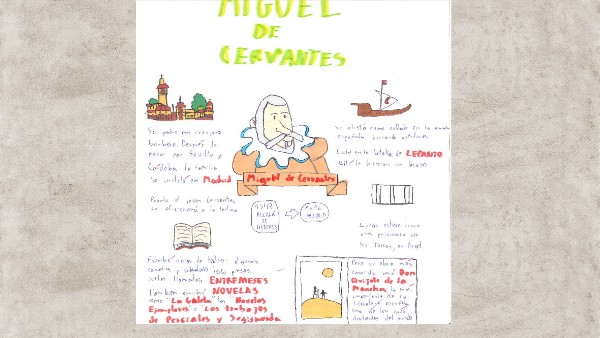 MIGUEL
DE
CERVANTES
Su padre era cirujano
barbero. Después de
pasar por Sevilla y
Córdoba la familia
se instaló en Madrid
Pronto el joven Cervantes
se aficionará a la lectura
Escribió obras de teatro: algunas
comedias y sobretodo piezas
cortas llamadas ENTREMESES
También escribió NOVELAS
como "La Galatea" las "Novelas
Ejemplares" o "Los trabajos
de Persiles y Segismunda
Miguel de Cervantes
1547
ALCALÁ
DE
HENARES
1616
MADRID
Se alistó como soldado en la
española
Luchó en la batalla de LEPANTO
le hirieron un brazo
Luego estuvo
una prisionero de
los turcos, en Argel
Pero su obra más
conocida será Don
Quijote de la
Mancha, la más
importante de la
literatura española
una de las más
del mundo